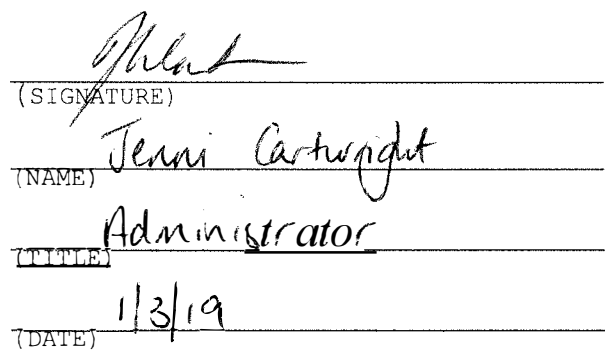 (SIGNATURE)
Jenni Cartwright
(NAME)
Administrator
(TITLE)
1/3/19
(DATE)